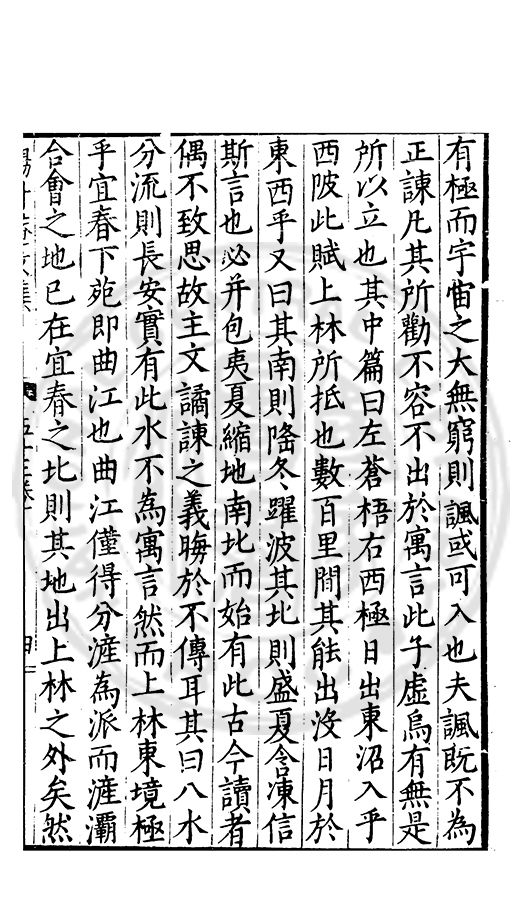 有極而宇宙之大無窮則諷或可入也夫諷既不為
正諫凡其所勸不容不出於寓言此子虛烏有無是
所以立也其中篇曰左蒼梧右西極日出東沼入乎
西陂此賦上林所抵也數百里間其能出沒日月於
東西乎又曰其南則隆冬躍波其北則盛夏含凍信
斯言也必并包夷夏縮地南北而始有此古今讀者
偶不致思故主文譎諫之義晦於不傳耳其曰八水
分流則長安實有此水不為寓言然而上林東境極
乎宜春下苑即曲江也曲江僅得分滻為派而滻灞
合會之地已在宜春之北則其地出上林之外矣然